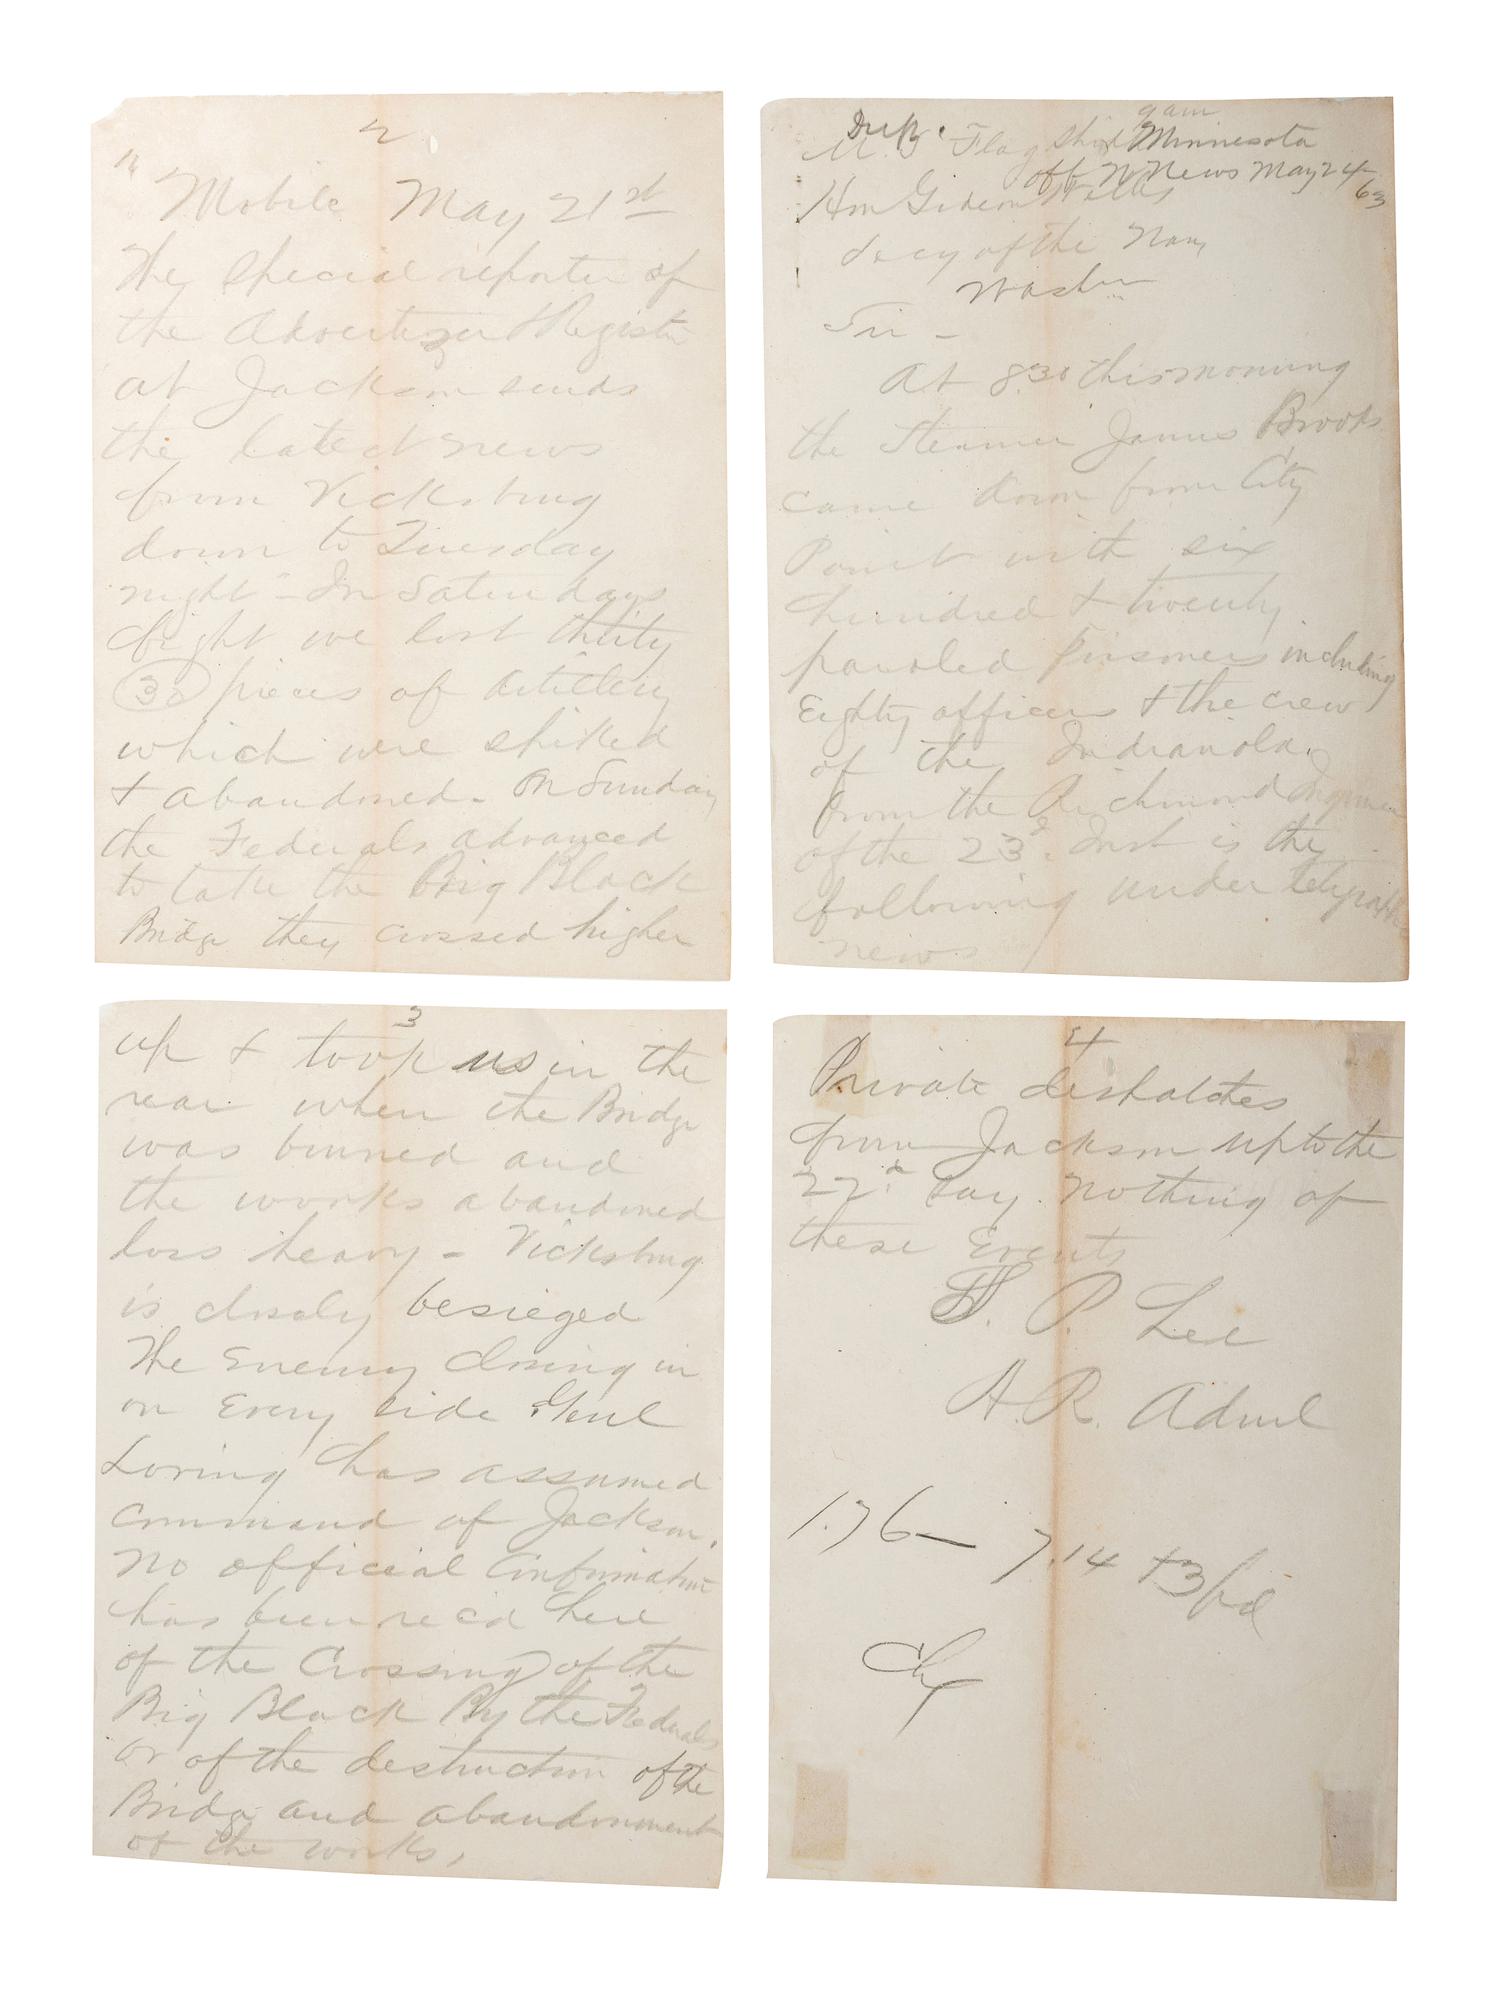 9 am
Dup.
U.S. Flag Ship Minnesota
off N News May 24
63
Hon Gideon Welles
Secy of the Navy
Washn
Sir -
At 8.30 this morning
the Steamer James Brooks
came down from City
Point with six
hundred & twenty
paroled prisoners including
Eighty officers & the crew
of the Indianola.
From the Richmond Inquirer
of the 23d Inst is the
following under telegraphic
news
2
"Mobile May 21st
The Special reporter of
the Advertizer & Register
at Jackson sends
the latest news
from Vicksburg
down to Tuesday
night - In Saturdays
fight we lost thirty
30 pieces of artillery
which were spiked
& abandoned - On Sunday
the Federals advanced
to take the Big Black
Bridge they crossed higher
3
up & took us in the
rear when the Bridge
was burned and
the works abandoned
loss heavy - Vicksburg
is closely besieged
The Enemy closing in
on Every side Genl
Loring has assumed
command of Jackson.
No official information
has been recd here
of the Crossing of the
Big Black By the Federals
or of the destruction of the
Bridge and abandonment
of the works,
4
Private despatches
from Jackson up to the
22d say nothing of
these Events
S. P. Lee
A. R. Adml
176- 7.14 +3 pd